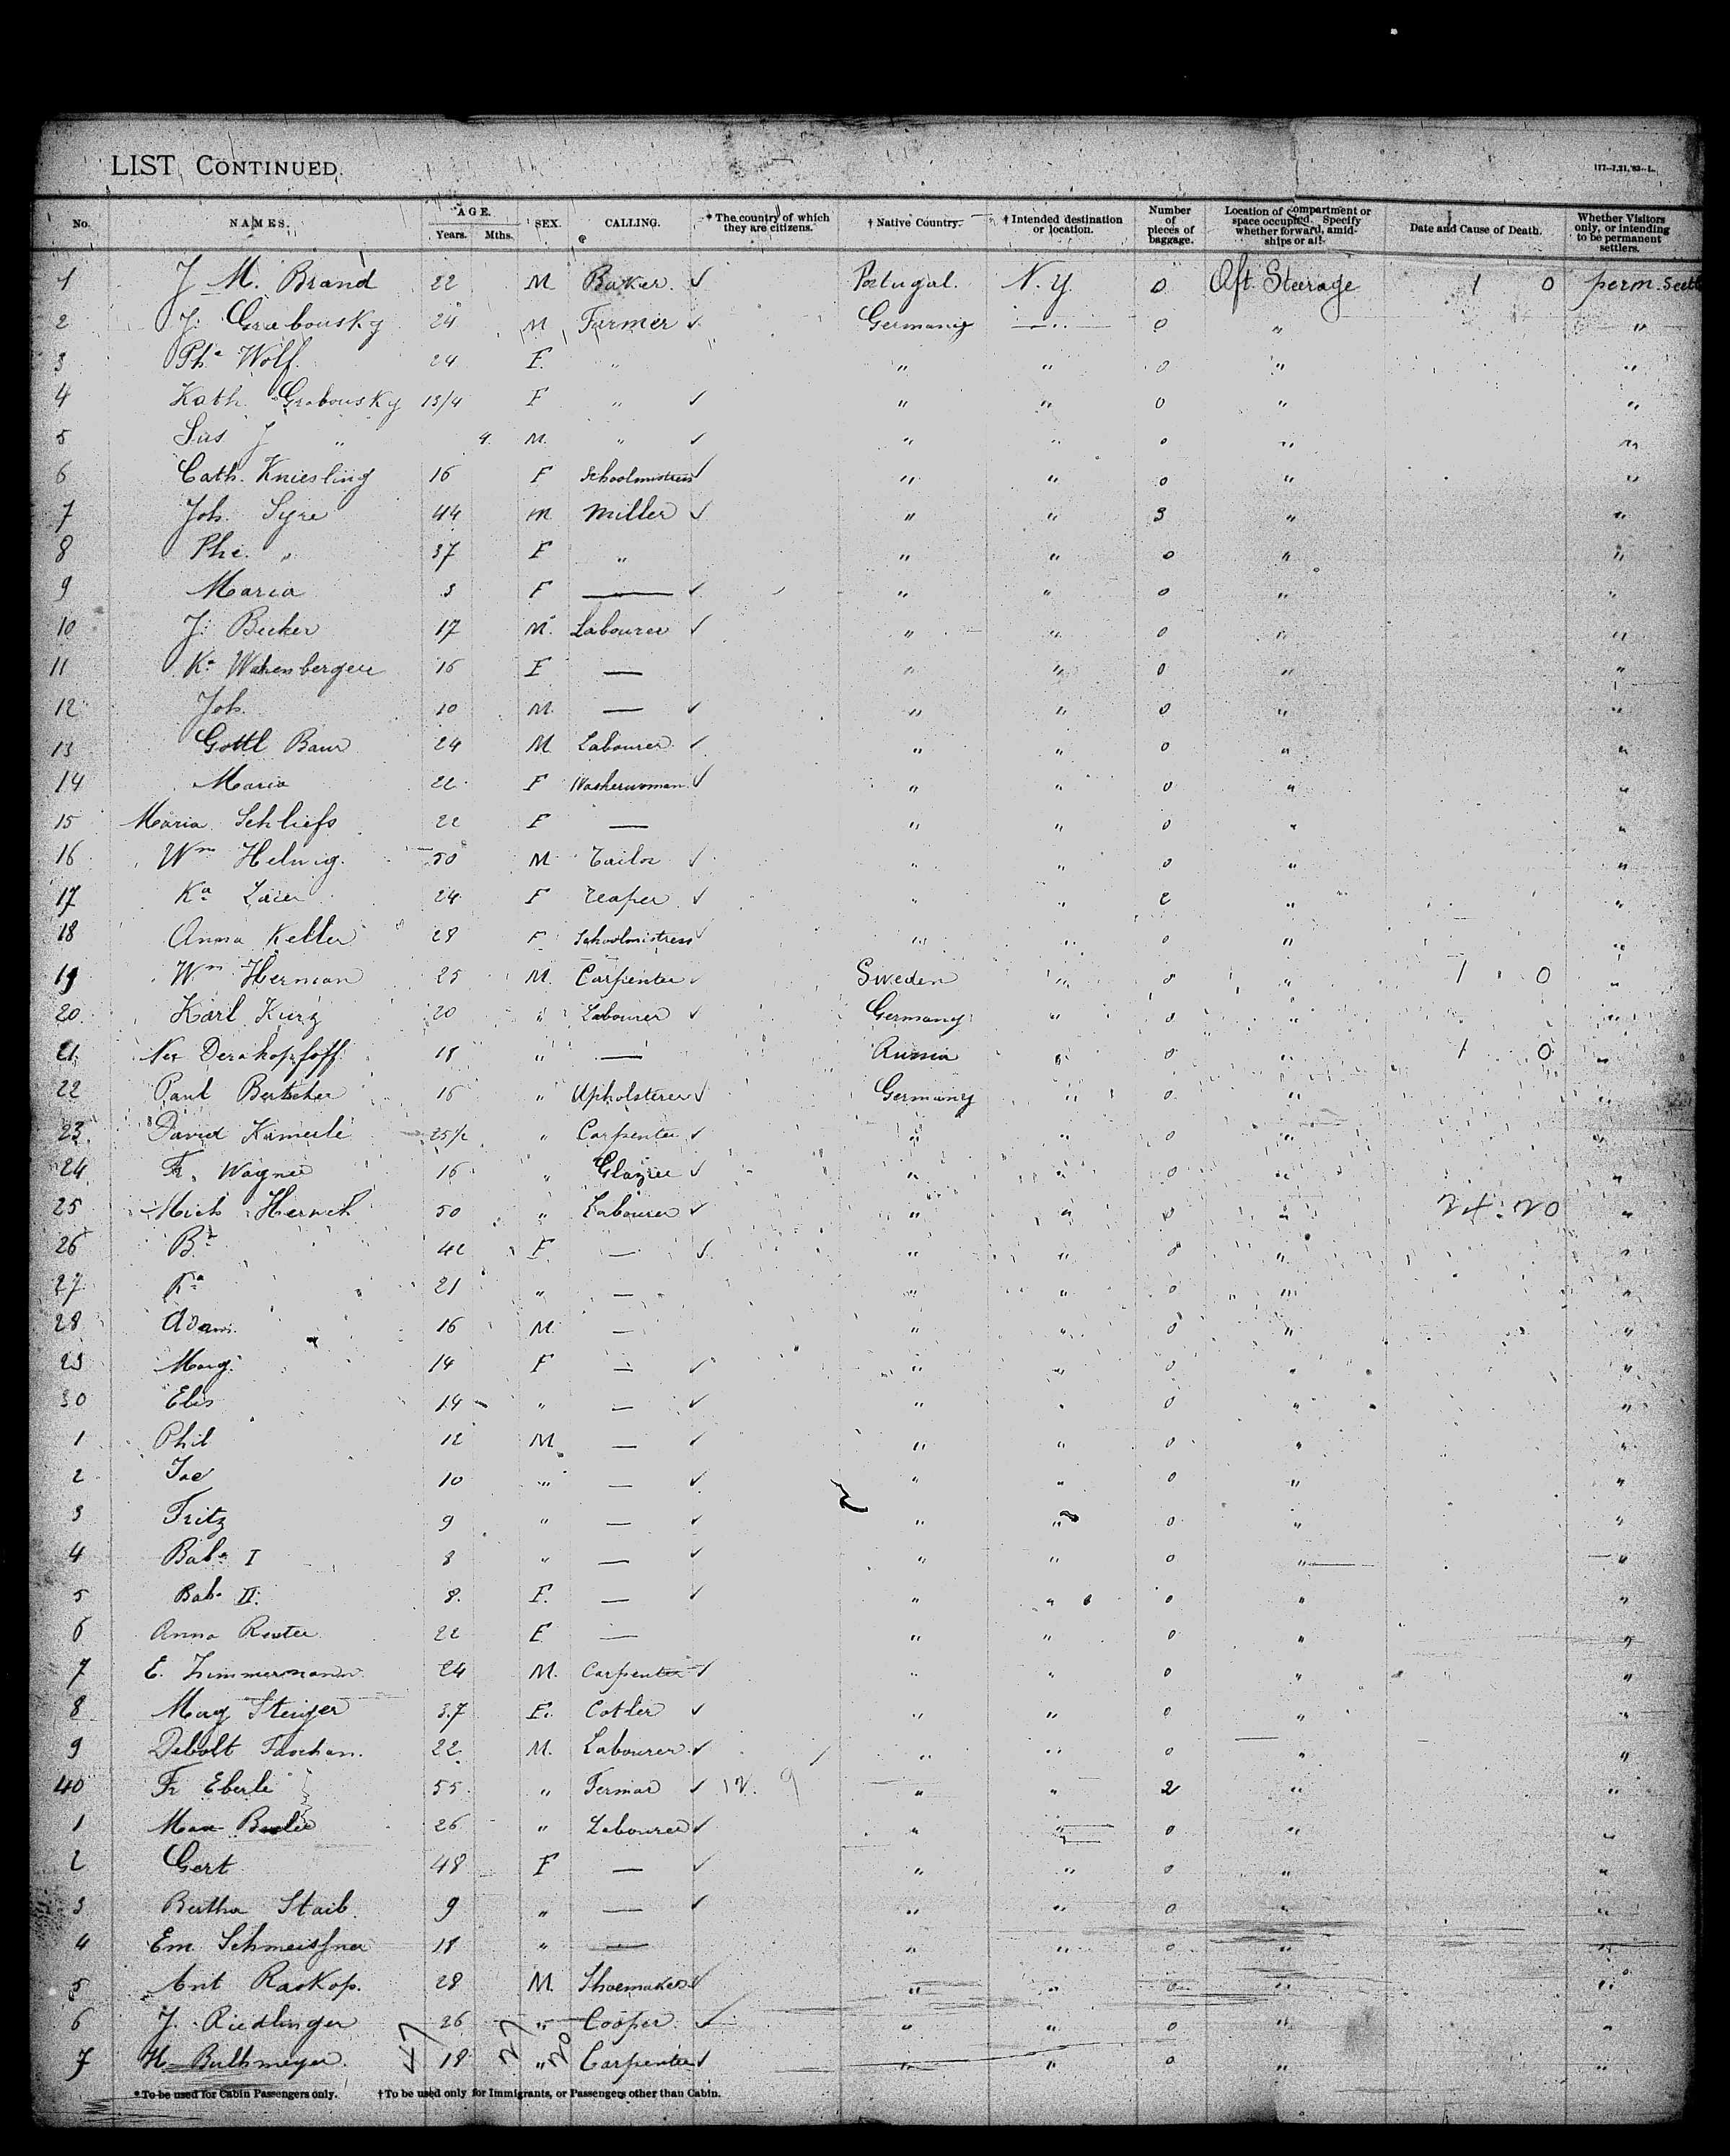 LIST CONTINUED.
No. NAMES. AGE. Years. Mths. SEX. CALLING. * The country of which they are citizens. † Native Country. † Intended destination or location. Number of pieces of baggage. Location of compartment or space occupied. Specify whether forward, amidships or aft. Date and Cause of Death. Whether Visitors only, or intending to be permanent settlers.
1 J M. Brand 22 M Baker ✓ Portugal. N.Y. 0 Aft Steerage 1 0 perm. Settl
2 J. Grabousky 24 M Farmer ✓ Germany —〃— 0 〃 〃
3 Pha Wolf 24 F. 〃 〃 〃 0 〃 〃
4 Kath Grabousky 13/4 F 〃 ✓ 〃 〃 0 〃 〃
5 J 〃 9 M. 〃 ✓ 〃 〃 0 〃 〃
6 Cath. Kniesling 16 F Schoolmistress ✓ 〃 〃 0 〃 〃
7 Joh. Syre 44 M Miller ✓ 〃 〃 3 〃 〃
8 Phi. 〃 37 F 〃 〃 〃 0 〃 〃
9 Maria 3 F — ✓ 〃 〃 0 〃 〃
10 J. Becker 17 M. Labourer ✓ 〃 〃 0 〃 〃
11 Ka 16 F — 〃 〃 0 〃 〃
12 Joh. 10 M. — ✓ 〃 〃 0 〃 〃
13 Gottl Baur 24 M Labourer ✓ 〃 〃 0 〃 〃
14 Maria 22 F Washerwoman ✓ 〃 〃 0 〃 〃
15 Maria Schliefs 22 F — 〃 〃 0 〃 〃
16 Wm Helwig. 50 M Tailor ✓ 〃 〃 0 〃 〃
17 Ka 24 F reaper ✓ 〃 〃 2 〃 〃
18 Anna Keller 28 F Schoolmistress ✓ 〃 〃 0 〃 〃
19 Wm Herman 25 M. Carpenter ✓ Sweden 〃 0 〃 1 0 〃
20 Karl Kurz 20 〃 Labourer ✓ Germany 〃 0 〃 〃
21 18 〃 — Russia 〃 0 〃 1 0 〃
22 Paul 16 〃 Upholsterer ✓ Germany 〃 0 〃 〃
23 David Kämerle 25½ 〃 Carpenter ✓ 〃 〃 0 〃 〃
24 Fr. Wagner 16 〃 Glazier ✓ 〃 〃 0 〃 〃
25 Mich 50 〃 Labourer ✓ 〃 〃 0 〃 24.20 〃
26 42 F — ✓ 〃 〃 0 〃 〃
27 Ka 21 〃 — 〃 〃 0 〃 〃
28 Adam 16 M. — 〃 〃 0 〃 〃
29 Marg. 14 F — ✓ 〃 〃 0 〃 〃
30 Elis 14 〃 — ✓ 〃 〃 0 〃 〃
1 Phil 12 M — ✓ 〃 〃 0 〃 〃
2 Jac 10 〃 — ✓ 〃 〃 0 〃 〃
3 Fritz 9 〃 — ✓ 〃 〃 0 〃 〃
4 Baba I 8 〃 — ✓ 〃 〃 0 〃 〃
5 Baba II. 8. F. — ✓ 〃 〃 0 〃 〃
6 Anna Reuter 22 F — 〃 〃 0 〃 〃
7 E. Zimmermann 24 M. Carpenter ✓ 〃 〃 0 〃 〃
8 Marg Steiger 37 F. ✓ 〃 〃 0 〃 〃
9 Debolt 22 M. Labourer ✓ 〃 〃 0 〃 〃
40 Fr Eberle 55 〃 Fermar ✓ 12. 9 〃 〃 2 〃 〃
1 Max 26 〃 Labourer ✓ 〃 〃 0 〃 〃
2 Gert 48 F — ✓ 〃 〃 0 〃 〃
3 Bertha Staib 9 〃 — ✓ 〃 〃 0 〃 〃
4 Em Schmeissner 18 〃 — 〃 〃 0 〃 〃
5 Ant Raskop. 28 M. Shoemaker ✓ 〃 〃 0 〃 〃
6 J. Riedlinger 26 〃 Cooper ✓ 〃 〃 0 〃 〃
7 H. Buthmeyer. 18 〃 Carpenter ✓ 〃 〃 0 〃 〃
47 27 20
* To be used for Cabin Passengers only. † To be used only for Immigrants, or Passengers other than Cabin.